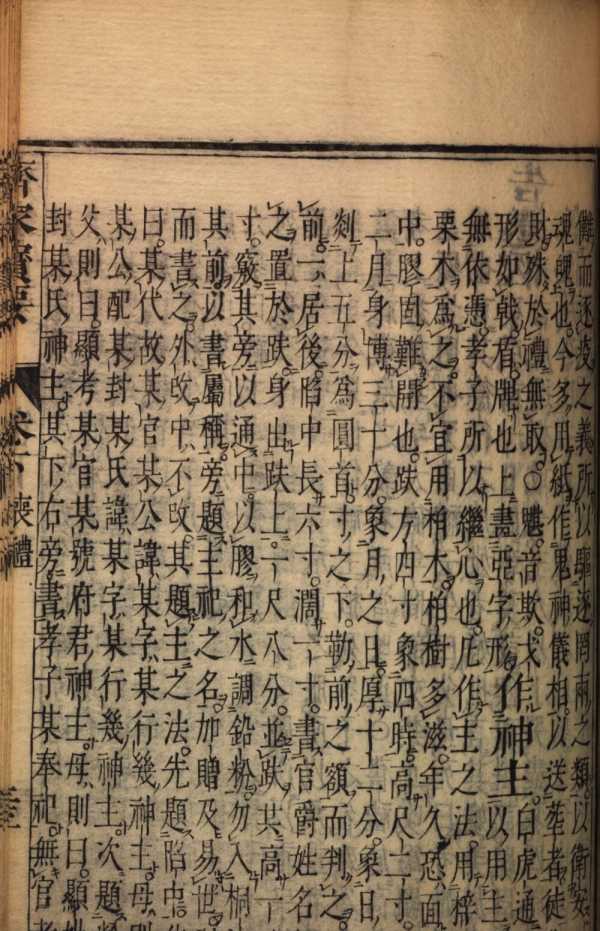 儺而逐疫之義所以驅逐罔兩之類以衛安
魂魄也。今多用紙作鬼神儀相以送塟者徒
則殊於禮無取。○䫏音欺戈
形如戟盾牌也上畫亞字形作神主白虎通
無依憑孝子所以繼心也。凡作主之法用梓
栗木爲之。不宜用柏木。柏樹多滋年久恐面
中膠固難開也。趺方四寸象四時。高尺二寸。
二月身博三十分。象月之日。厚十二分。象日
剡上五分爲圓首。寸之下。勒前之額而判之
前一居後。陷中長六寸。濶一寸。書官爵姓名
之置於趺。身出趺上一尺八分。並趺共高一
寸。竅其旁以通中。以膠和水調鉛粉勿入桐
其前以書屬稱旁題主祀之名加贈及易世
而書之。外改中不改。其題主之法。先題陷中
曰。某代故某官某公諱某字某行幾神主。母則
某公配某封某氏諱某字某行幾神主。次題
父則曰。顯考某官某號府君神主。母則曰。顯
封某氏神主。其下右旁。書孝子某奉祀。無官
齊家寶要
卷下 喪禮